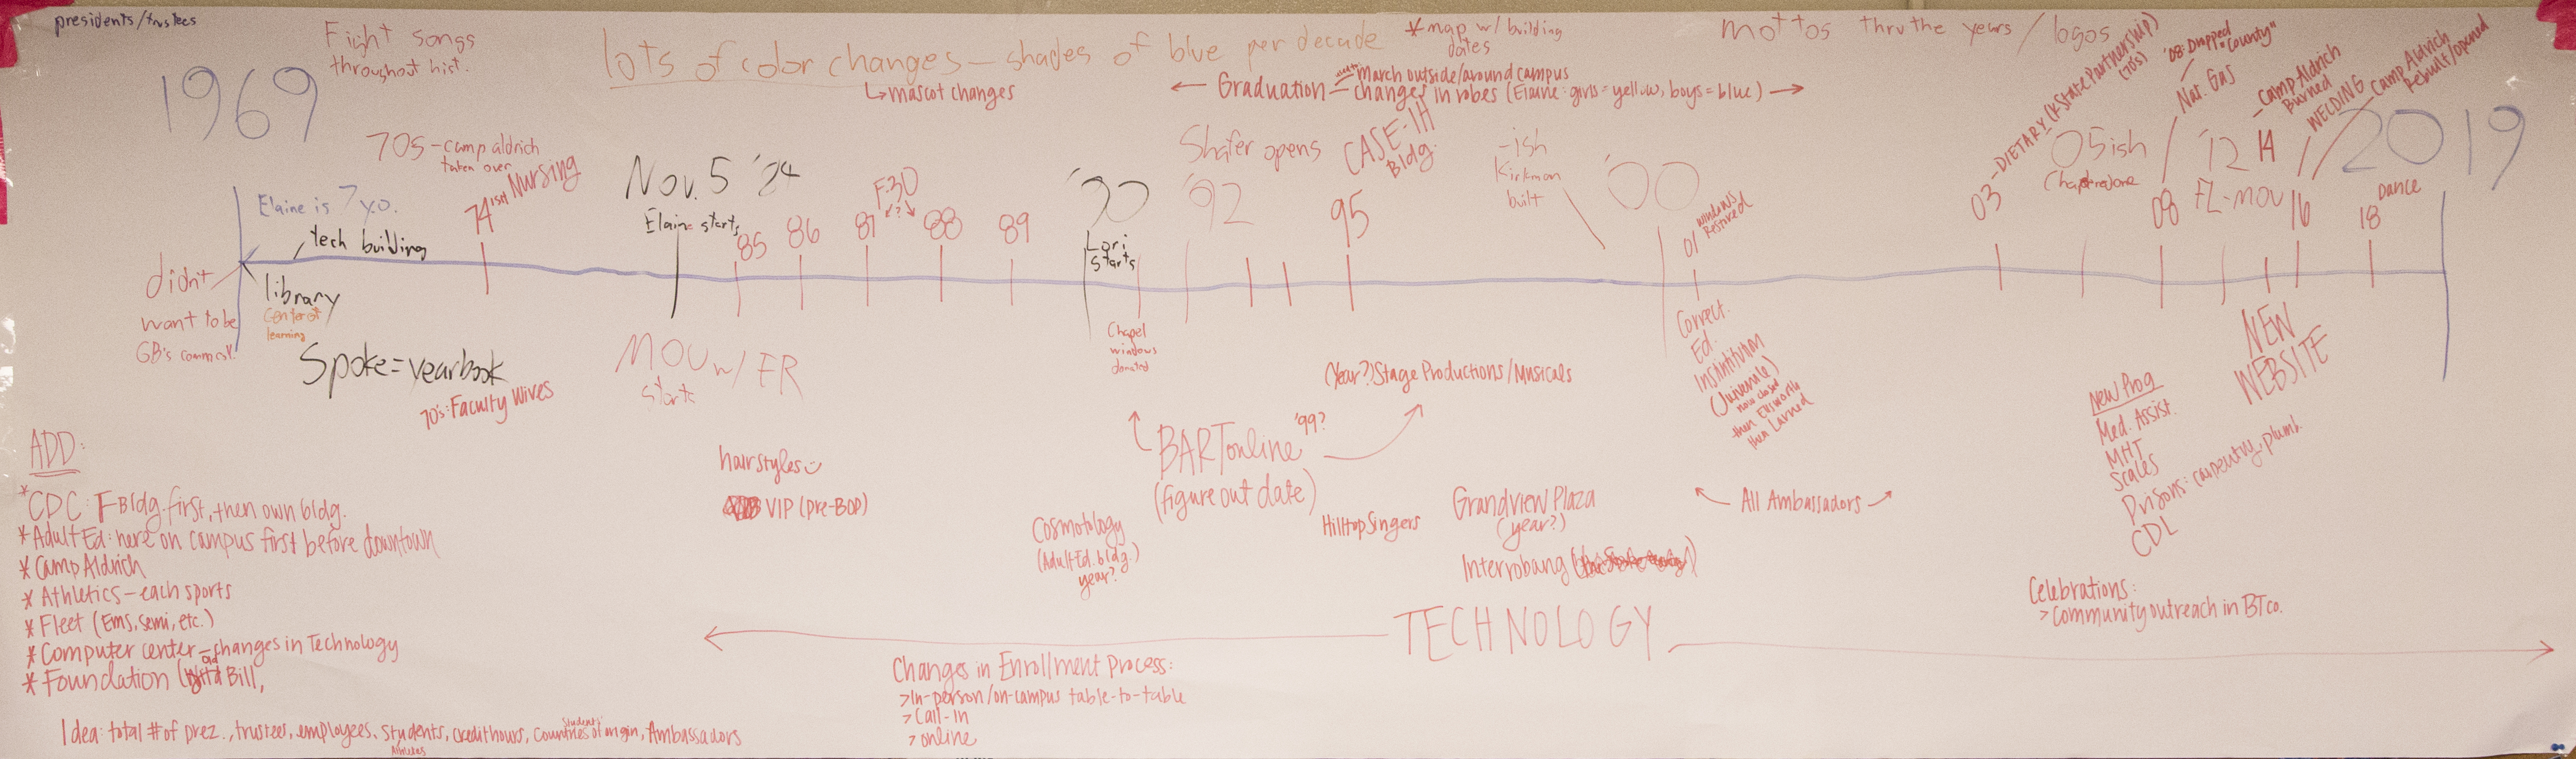 presidents/trustees
Fight songs
throughout hist.
lots of color changes - shades of blue per decade
↳mascot changes
*map w/ building
dates
← Graduation - march outside/around campus
- changes in robes (Elaine: girls = yellow, boys = blue) →
mottos thru the years / logos
1969
70s - camp aldrich
taken over
74 ish Nursing
Elaine is 7 y.o.
tech building
didn't
want to be
GB's comm.
library
center of
learning
Spoke = yearbook
70's: Faculty Wives
Nov. 5 '84
Elaine starts
MOU w/ FR
starts
85
86
87
F.30
?
88
89
'90
Lori
starts
Chapel
windows
donated
'92
Shafer opens
95
CASE-IH
Bldg.
-ish
Kirkman
built
'00
01 windows
Restored
Correct.
Ed.
Institution
(Juvenile)
now closed
then Ellsworth
then Larned
03 - DIETARY (K-State Partnership)
(70's)
05ish
Chapel redone
'08: Dropped "County"
Nat. Gas
08
'12
FL-MOU
14
- Camp Aldrich
Burned
WELDING
16
Camp Aldrich
Rebuilt/opened
18
Dance
2019
NEW
WEBSITE
New Prog
Med. Assist.
MHT
Scales
Prisons: carpentry, plumb.
CDL
(Year?) Stage Productions/Musicals
BARTonline '99?
(figure out date)
hairstyles
VIP (pre-BOD)
Cosmotology
(Adult Ed. bldg.)
year?
Hilltop Singers
Grandview Plaza
(year?)
Interrobang
← All Ambassadors →
Celebrations:
> Community outreach in BTco.
TECHNOLOGY
Changes in Enrollment Process:
> In-person/on-campus table-to-table
> Call-In
> online
ADD:
*CDC: F-Bldg. first, then own bldg.
* Adult Ed: here on campus first before downtown
* Camp Aldrich
* Athletics - each sports
* Fleet (EMS, semi, etc.)
* Computer center - changes in Technology
* Foundation (old Bill,
Idea: total # of prez., trustees, employees, students, credit hours, students' countries of origin, Ambassadors
Athletes